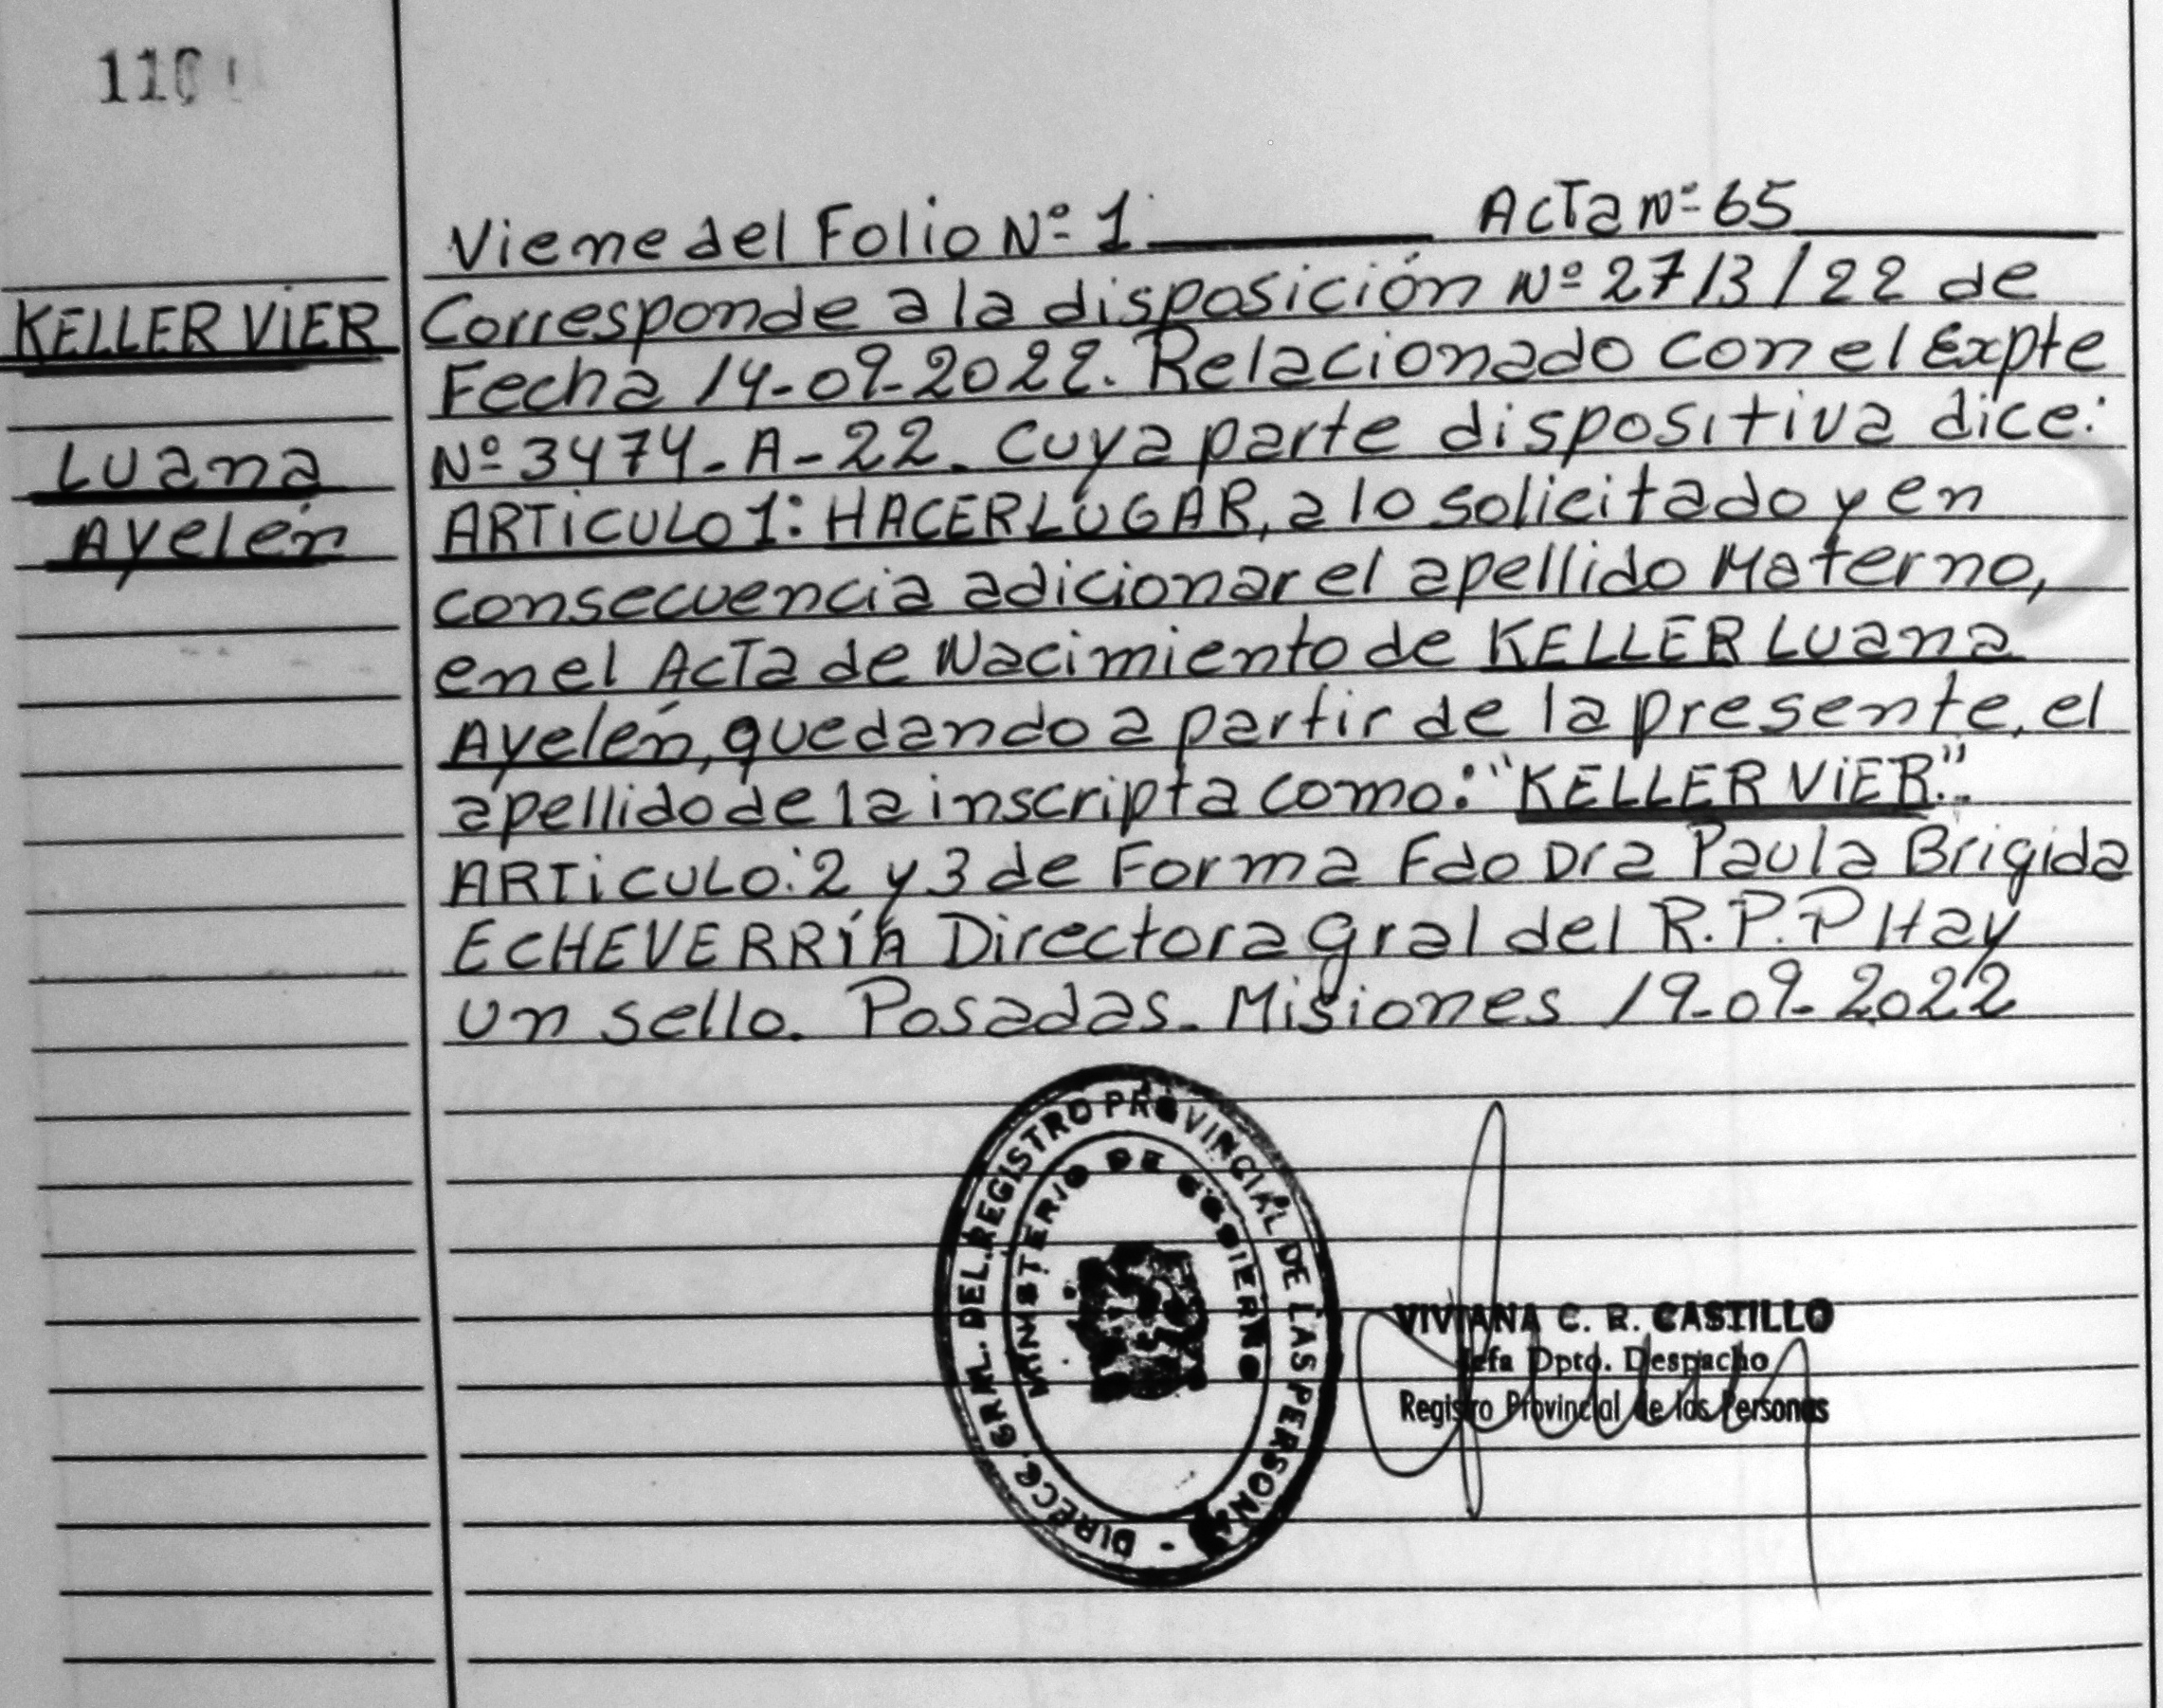 110
Viene del Folio Nº 1 Acta Nº 65
KELLER VIER
Luana
Ayelén
Corresponde a la disposición Nº 2713/22 de
Fecha 14-09-2022. Relacionado con el Expte
Nº 3474-A-22. Cuya parte dispositiva dice:
ARTICULO 1: HACER LUGAR, a lo solicitado y en
consecuencia adicionar el apellido Materno,
en el Acta de Nacimiento de KELLER Luana
Ayelén, quedando a partir de la presente, el
apellido de la inscripta como: "KELLER VIER".
ARTICULO: 2 y 3 de Forma Fdo Dra Paula Brigida
ECHEVERRÍA Directora Gral del R.P.P Hay
un sello. Posadas. Misiones 19-09-2022
DIRECC. GRAL. DEL REGISTRO PROVINCIAL DE LAS PERSONAS -
MINISTERIO DE GOBIERNO
VIVIANA C. R. CASTILLO
Jefa Dpto. Despacho
Registro Provincial de las Personas